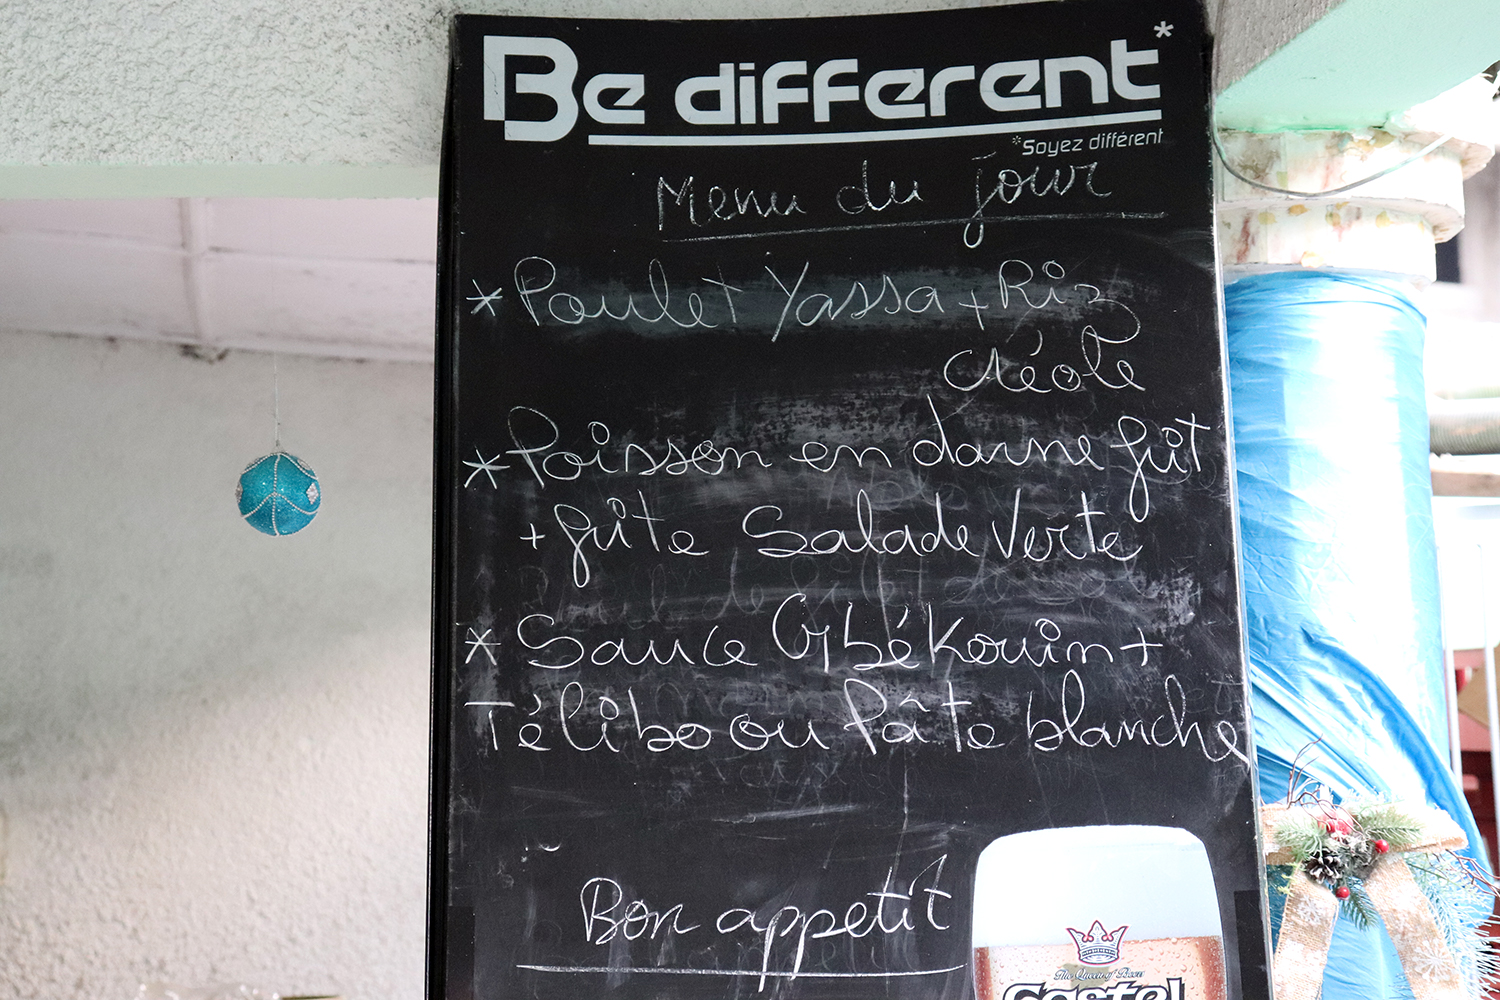 Be different*
*Soyez différent
Menu du jour
* Poulet Yassa + Riz
créole
* Poisson en darne frit
+ frite Salade Verte
* Sauce Gbékouin +
Télibo ou Pâte blanche
Bon appetit
The Queen of Beers
Castel